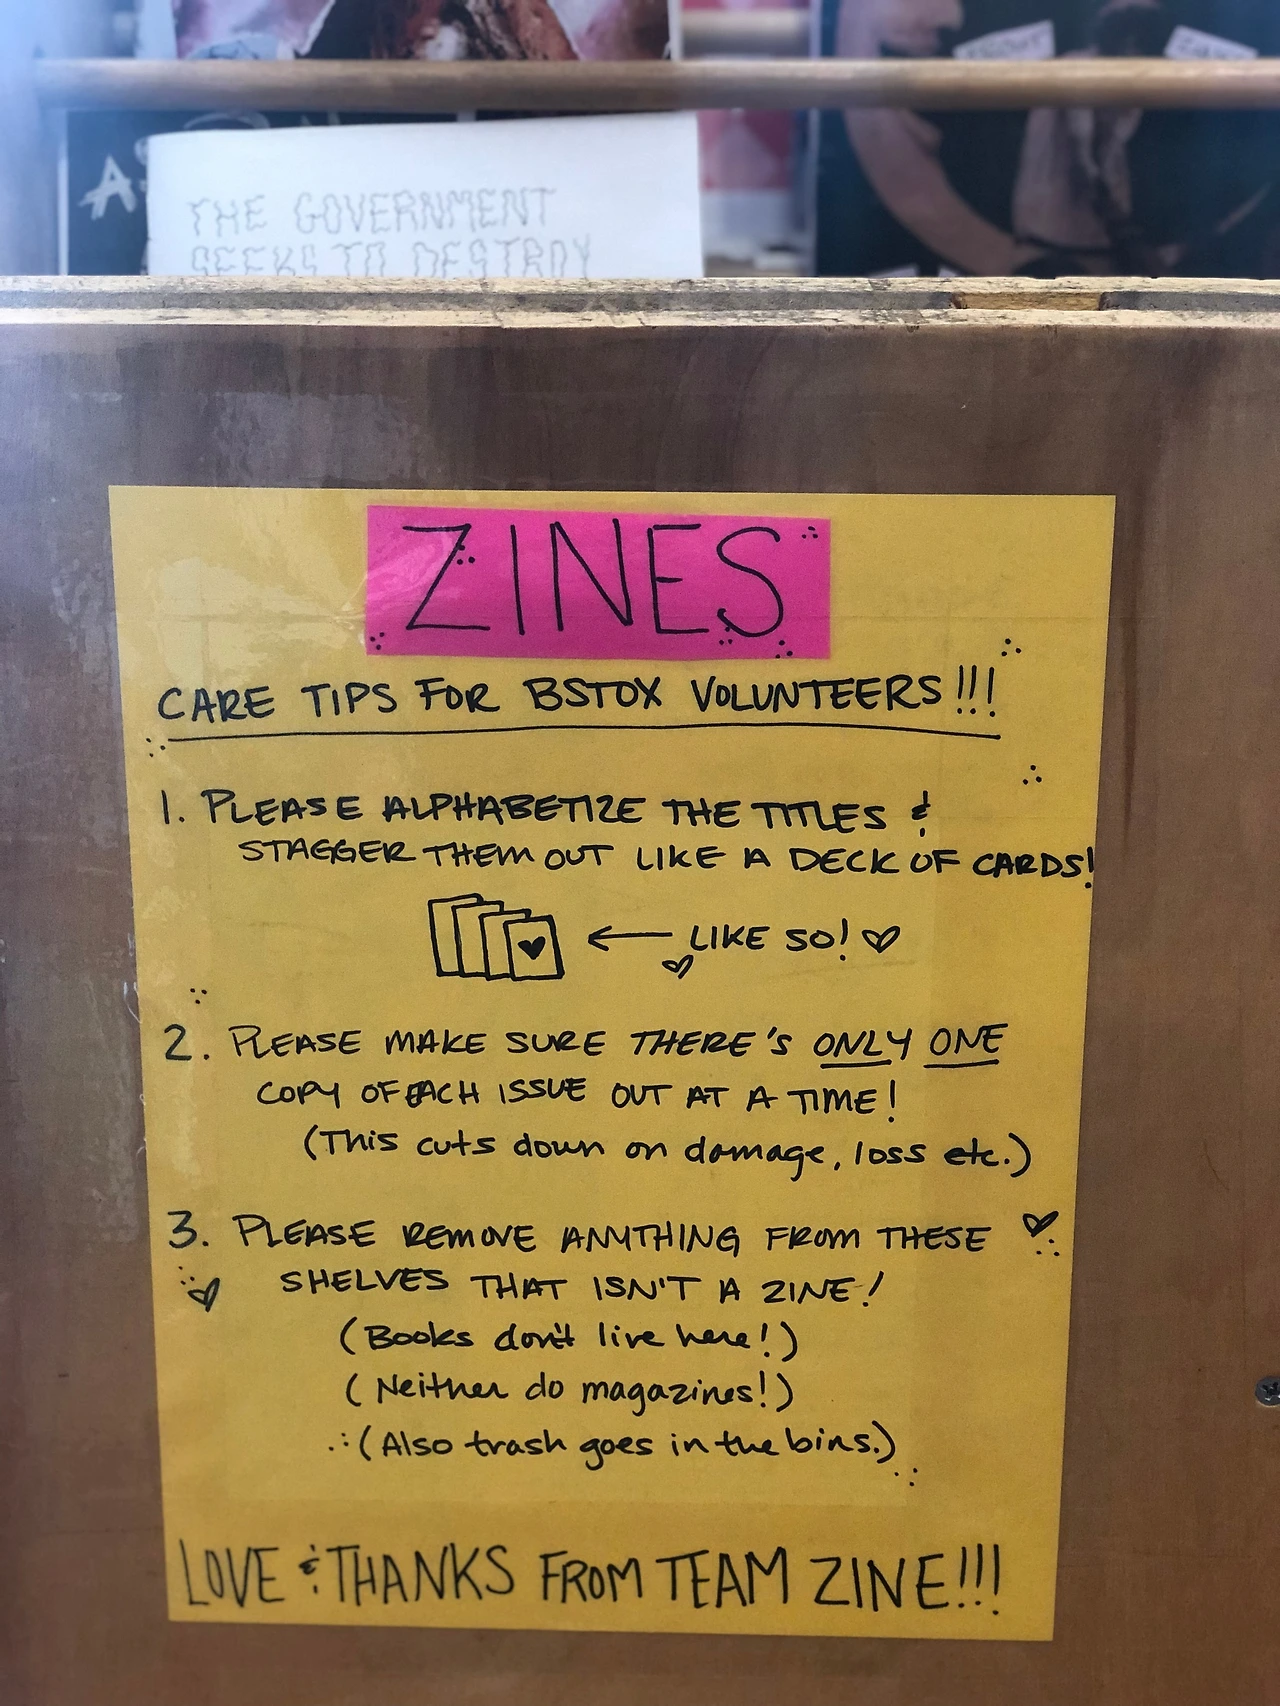 THE GOVERNMENT
SEEKS TO DESTROY
ZINES
CARE TIPS FOR BSTOX VOLUNTEERS!!!
1. PLEASE ALPHABETIZE THE TITLES &
STAGGER THEM OUT LIKE A DECK OF CARDS!
← LIKE SO! ♡
2. PLEASE MAKE SURE THERE'S ONLY ONE
COPY OF EACH ISSUE OUT AT A TIME!
(This cuts down on damage, loss etc.)
3. PLEASE REMOVE ANYTHING FROM THESE
SHELVES THAT ISN'T A ZINE!
(Books don't live here!)
(Neither do magazines!)
(Also trash goes in the bins.)
LOVE & THANKS FROM TEAM ZINE!!!